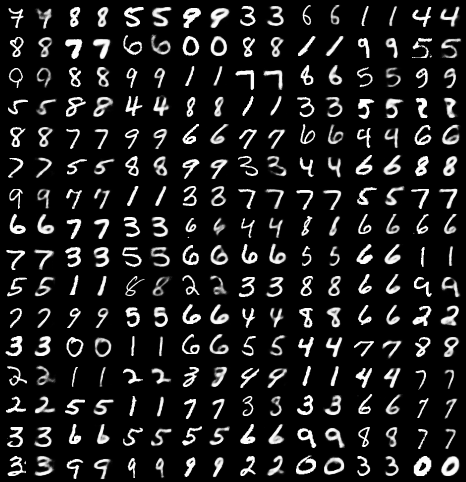 7 7 8 8 5 5 9 9 3 3 6 6 1 1 4 4
8 8 7 7 6 6 0 0 8 8 1 1 9 9 5 5
0 9 8 8 9 9 1 1 7 7 8 6 5 5 9 9
5 5 8 8 4 4 8 8 1 1 3 3 5 5
8 8 7 7 9 9 6 6 7 7 6 6 4 4 6 6
7 7 5 5 8 8 9 9 3 3 4 4 6 6 8 8
9 9 7 7 1 1 3 3 7 7 7 7 5 5 7 7
6 6 7 7 3 3 6 6 4 4 8 8 6 6 6 6
7 7 3 3 5 5 6 6 6 6 5 5 6 6 1 1
5 5 1 1 8 8 2 2 3 3 8 8 6 6 9 9
7 7 9 9 5 5 6 6 4 4 8 8 6 6 2 2
3 3 0 0 1 1 6 6 5 5 4 4 7 7 8 8
2 2 1 1 2 2 3 3 9 9 1 1 4 4 7 7
2 2 5 5 1 1 7 7 3 3 3 3 6 6 7 7
3 3 6 6 5 5 5 5 6 6 9 9 8 8 7 7
3 3 9 9 9 9 9 9 2 2 0 0 3 3 0 0